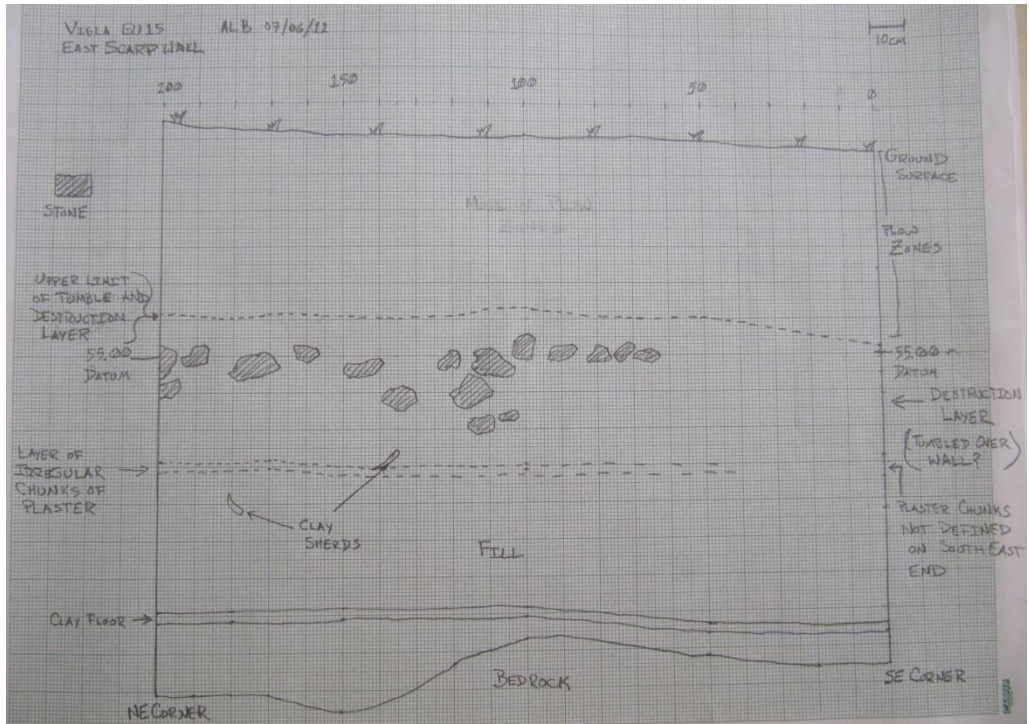 VIGLA EU15 ALB 07/06/12
EAST SCARP WALL
10CM
200 150 100 50 0
GROUND
SURFACE
STONE
PLOW
ZONES
PLOW
ZONES
UPPER LIMIT
OF TUMBLE AND
DESTRUCTION
LAYER
55.00
DATUM
55.00 m
DATUM
DESTRUCTION
LAYER
(TUMBLED OVER
WALL?)
LAYER OF
IRREGULAR
CHUNKS OF
PLASTER
PLASTER CHUNKS
NOT DEFINED
ON SOUTH EAST
END
CLAY
SHERDS
FILL
CLAY FLOOR
BEDROCK
NE CORNER
SE CORNER